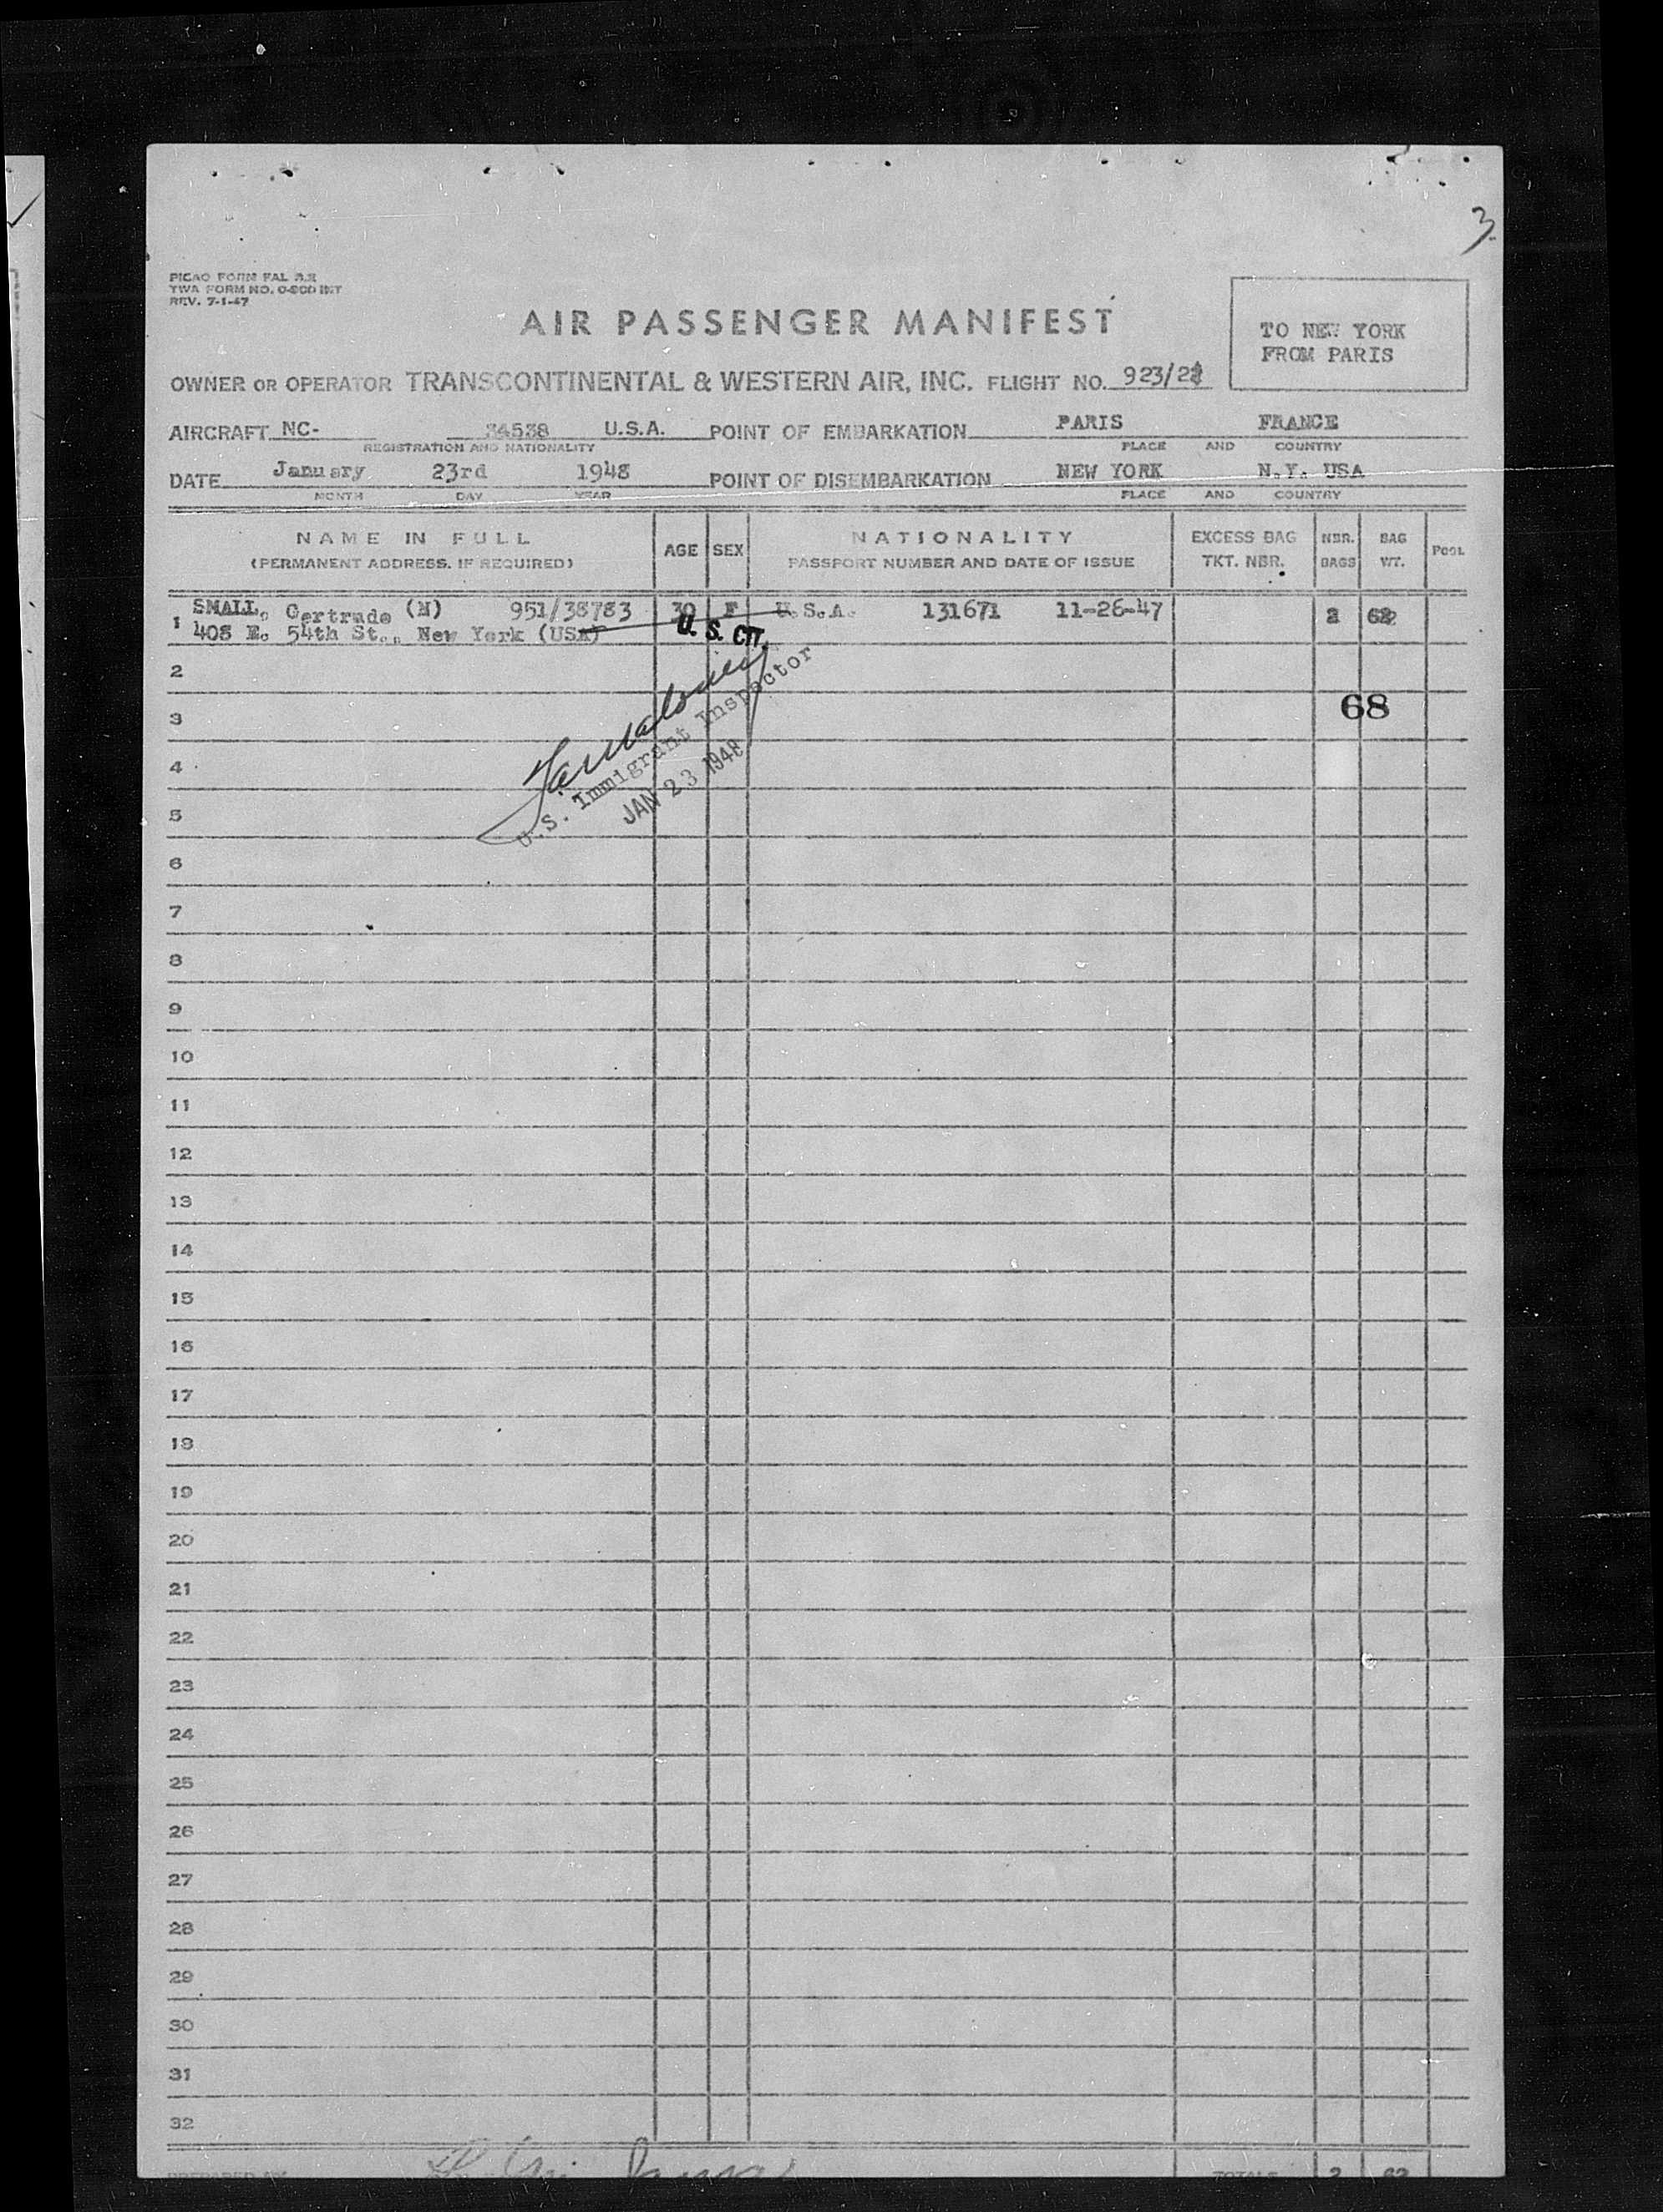 3
PICAO FORM FAL
TWA FORM NO. INT
REV. 7-1-47
AIR PASSENGER MANIFEST
TO NEW YORK
FROM PARIS
OWNER OR OPERATOR TRANSCONTINENTAL & WESTERN AIR, INC. FLIGHT NO. 923/22
AIRCRAFT NC- 34538 U.S.A. POINT OF EMBARKATION PARIS FRANCE
REGISTRATION AND NATIONALITY PLACE AND COUNTRY
DATE January 23rd 1948 POINT OF DISEMBARKATION NEW YORK N.Y. USA
MONTH DAY YEAR PLACE AND COUNTRY
NAME IN FULL AGE SEX NATIONALITY EXCESS BAG NBR. BAG POOL
(PERMANENT ADDRESS, IF REQUIRED) PASSPORT NUMBER AND DATE OF ISSUE TKT. NBR. BAGS WT.
1 SMALL, Gertrude (M) 951/38783 30 F U.S.A. 131671 11-26-47 2 62
408 E. 54th St., New York (USA) U. S. CIT.
2
3 68
4
U.S. Immigrant Inspector
JAN 23 1948
5
6
7
8
9
10
11
12
13
14
15
16
17
18
19
20
21
22
23
24
25
26
27
28
29
30
31
32
PREPARED BY TOTALS 2 62